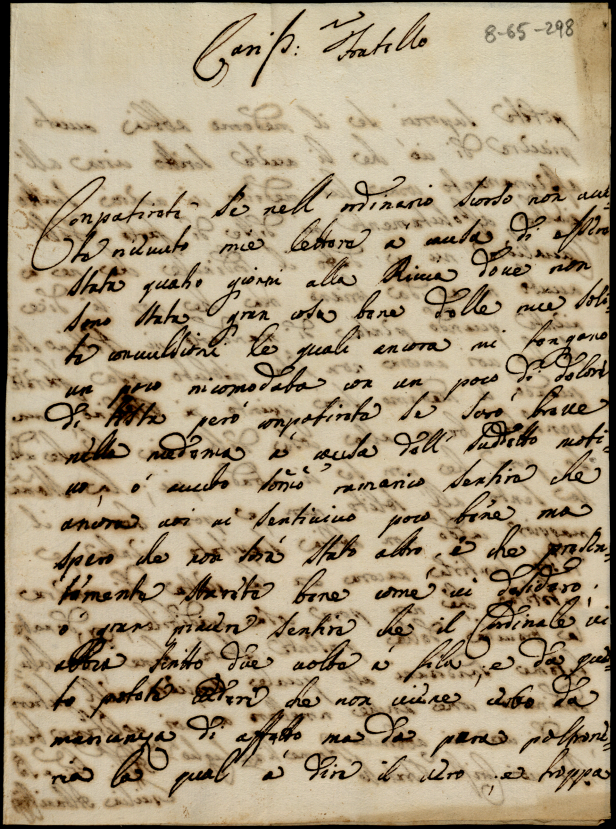 8-65-298
Cariss: mo Fratello
Conpatirete se nell' ordinario scorso non ave
te riceuuto mie lettere a causa di essere
stata quatro giorni alla Riccia doue non
sono stata gran cosa bene delle mie soli
te conuulsioni le quali ancora mi tengano
un poco incomodata con un poco di dolore
di testa però conpatirete se sarò breue
nella medema à causa dell' suddetto moti
uo, ò auuto somo ramarico sentire che
ancora uoi ui sentiuiuo poco bene ma
spero che non sarà stato altro, è che presen
tamente starete bene come ui desidero.
ò gran piacere sentire che il Cardinale ui
abbia scritto due uolte à fila, e da que
to potete uedere che non uiene da
mancanza di affetto ma da pura poltrone
ria la qual à dire il uero, e troppa